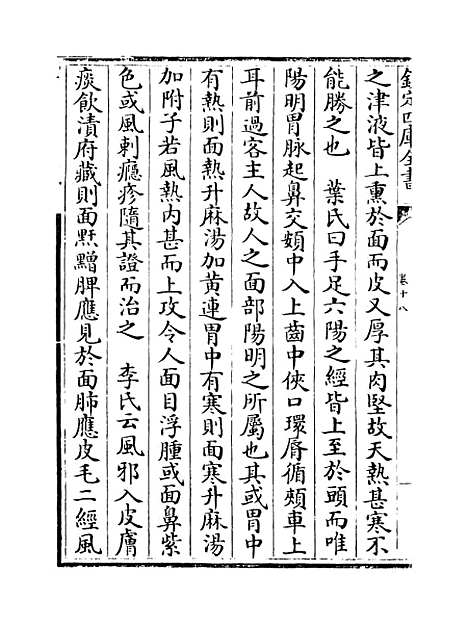 欽定四庫全書
卷十八
之津液皆上熏於面而皮又厚其肉堅故天熱甚寒不
能勝之也　葉氏曰手足六陽之經皆上至於頭而唯
陽明胃脉起鼻交頞中入上齒中俠口環脣循頰車上
耳前過客主人故人之面部陽明之所屬也其或胃中
有熱則面熱升麻湯加黃連胃中有寒則面寒升麻湯
加附子若風熱内甚而上攻令人面目浮腫或面鼻紫
色或風刺癮疹隨其證而治之　李氏云風邪入皮膚
痰飲漬府藏則面䵟䵳脾應見於面肺應皮毛二經風